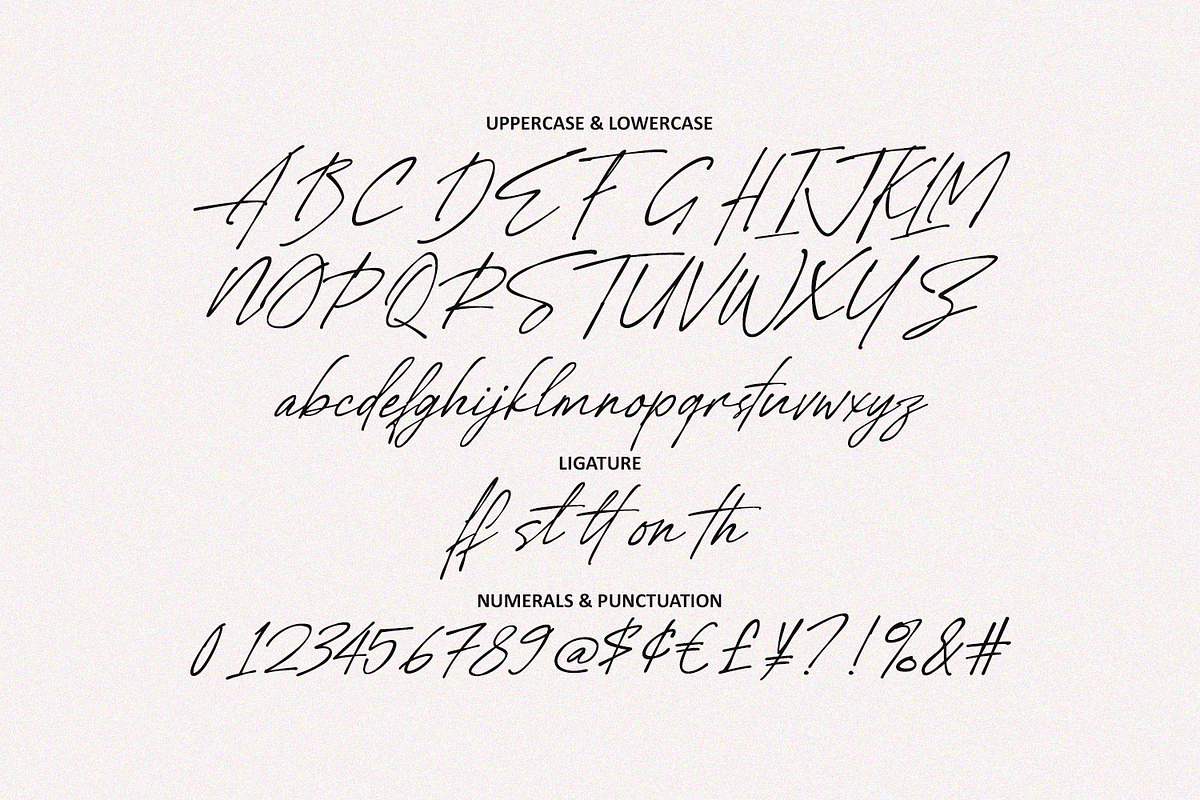 UPPERCASE & LOWERCASE
A B C D E F G H I J K L M
N O P Q R S T U V W X Y Z
a b c d e f g h i j k l m n o p q r s t u v w x y z
LIGATURE
ff st tt on th
NUMERALS & PUNCTUATION
0 1 2 3 4 5 6 7 8 9 @ $ ¢ € £ ¥ ? ! % & #